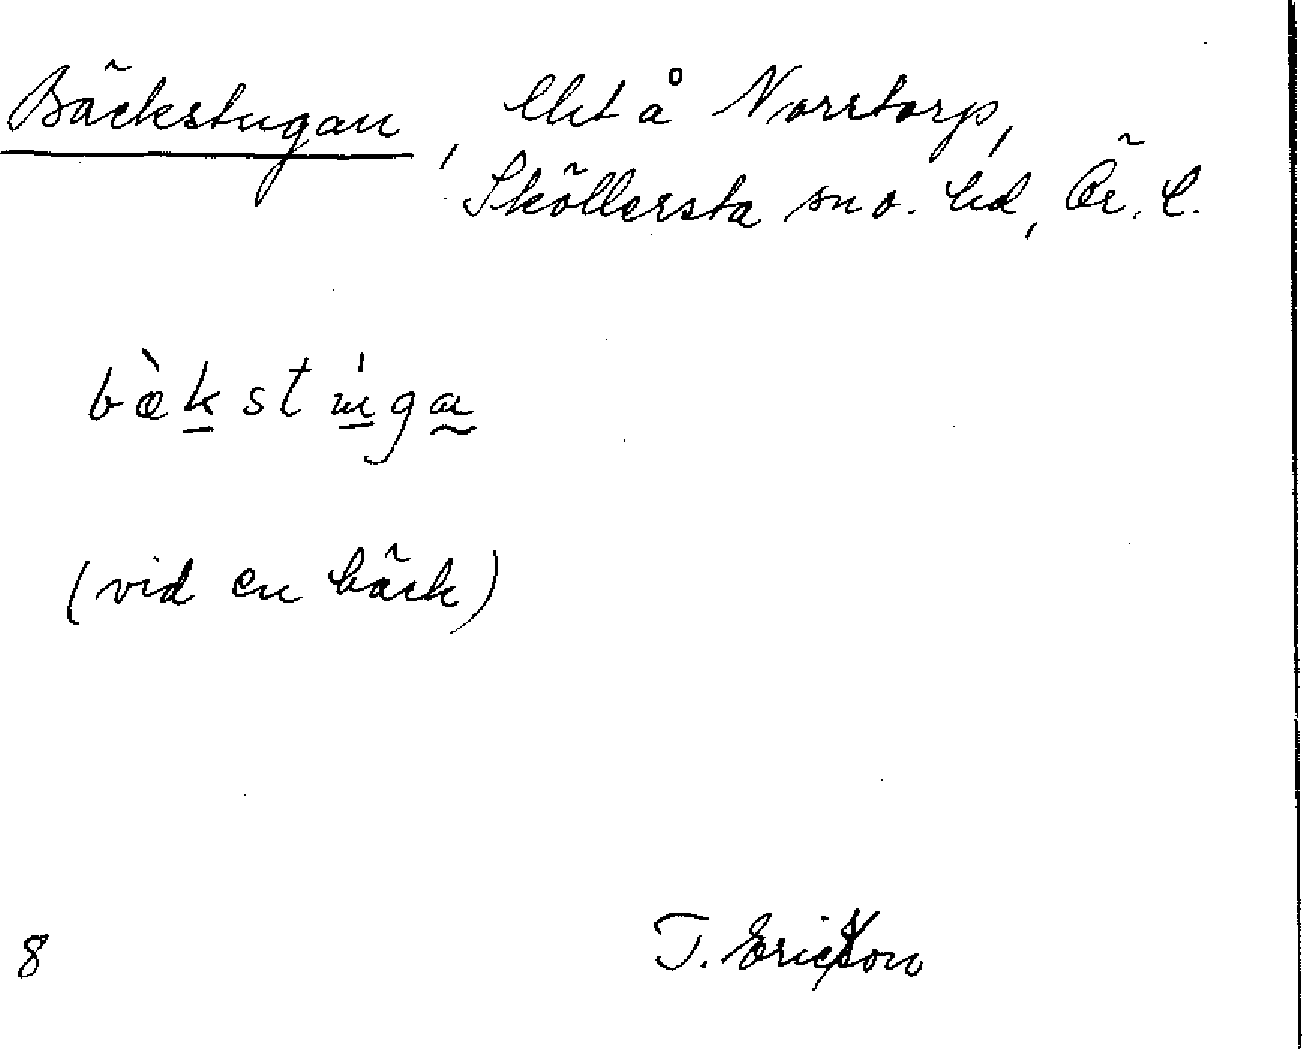 Bäckstugan, lht å Norrtorp,
Sköllersta sn o. hd, Ör. l.
bæ̀kstùga
(vid en bäck)
8
T. Ericsson